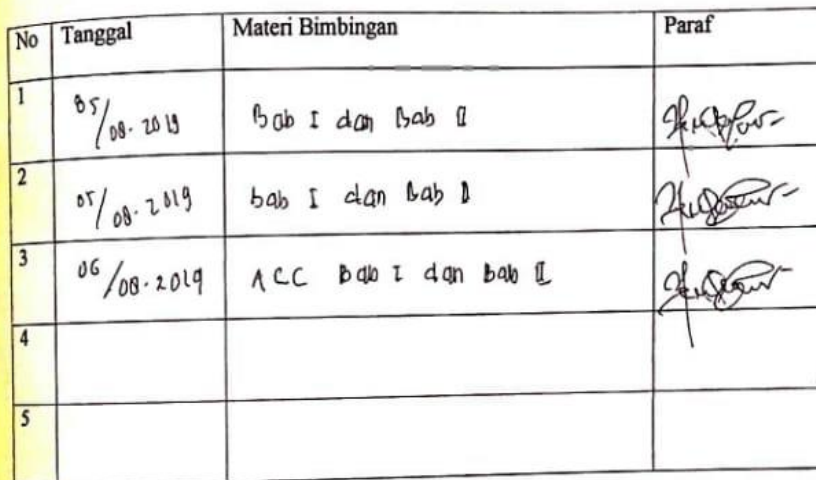 No Tanggal Materi Bimbingan Paraf
1 05/08-2019 Bab I dan Bab II
2 05/08-2019 bab I dan Bab II
3 06/08-2019 ACC Bab I dan Bab II
4
5